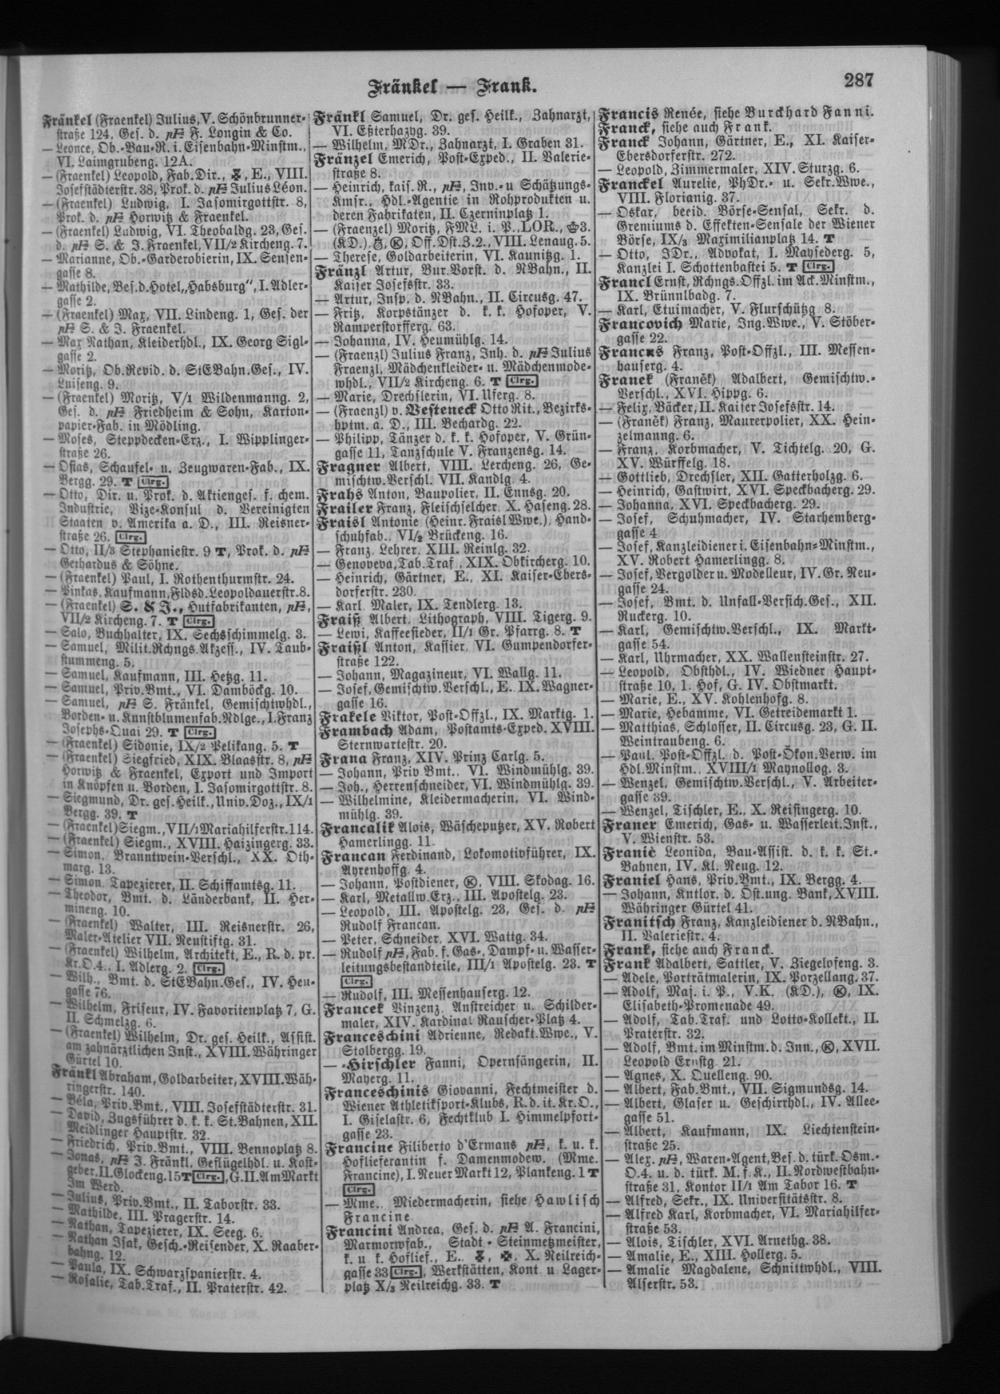 Fränkel — Frank.
287
Fränkel (Fraenkel) Julius, V. Schönbrunner-
straße 124, Ges. d. F. Longin & Co.
— Leonce, Ob.-Bau-R. i. Eisenbahn-Minstm.,
VI. Laimgrubeng. 12A.
— (Fraenkel) Leopold, Fab. Dir., E., VIII.
Josefstädterstr. 38, Prok. d. Julius Léon.
— (Fraenkel) Ludwig, I. Jasomirgottstr. 8,
Prok. d. Horwitz & Fraenkel.
— (Fraenkel) Ludwig, VI. Theobaldg. 23, Ges.
d. S. & J. Fraenkel, VII/2 Kircheng. 7.
— Marianne, Ob.-Garderobierin, IX. Sensen-
gasse 8.
— Mathilde, Bes. d. Hotel „Habsburg“, I. Adler-
gasse 2.
— (Fraenkel) Max, VII. Lindeng. 1, Ges. der
S. & J. Fraenkel.
— Max Nathan, Kleiderhdl., IX. Georg Sigl-
gasse 2.
— Moritz, Ob. Revid. d. StEBahn. Ges., IV.
Luiseng. 9.
— (Fraenkel) Moritz, V/1 Wildenmanng. 2,
Ges. d. Friedheim & Sohn, Karton-
papier-Fab. in Mödling.
— Moses, Steppdecken-Erz., I. Wipplinger-
straße 26.
— Osias, Schaufel- u. Zeugwaren-Fab., IX.
Bergg. 29. T Clrg.
— Otto, Dir. u. Prok. d. Aktienges. f. chem.
Industrie, Vize-Konsul d. Vereinigten
Staaten v. Amerika a. D., III. Reisner-
straße 26. Clrg.
— Otto, II/3 Stephaniestr. 9 T, Prok. d.
Gerhardus & Söhne.
— (Fraenkel) Paul, I. Rothenthurmstr. 24.
— Pinkas, Kaufmann, Fldsd. Leopoldauerstr. 8.
— (Fraenkel) S. & J., Hutfabrikanten,
VII/2 Kircheng. 7. T Clrg.
— Salo, Buchhalter, IX. Sechsschimmelg. 3.
— Samuel, Milit. Rchngs. Akzess., IV. Taub-
stummeng. 5.
— Samuel, Kaufmann, III. Hetzg. 11.
— Samuel, Priv. Bmt., VI. Damböckg. 10.
— Samuel, S. Fränkel, Gemischtwhdl.,
Borden- u. Kunstblumenfab. Ndlge., I. Franz
Josephs-Quai 29. T Clrg.
— (Fraenkel) Sidonie, IX/2 Pelikang. 5. T
— (Fraenkel) Siegfried, XIX. Blaasstr. 8,
Horwitz & Fraenkel, Export und Import
in Knöpfen u. Borden, I. Jasomirgottstr. 8.
— Siegmund, Dr. ges. Heilk., Univ. Doz., IX/1
Bergg. 39. T
— (Fraenkel) Siegm., VII/1 Mariahilferstr. 114.
— (Fraenkel) Siegm., XVIII. Haizingerg. 33.
— Simon, Branntwein-Verschl., XX. Oth-
marg. 13.
— Simon, Tapezierer, II. Schiffamtsg. 11.
— Theodor, Bmt. d. Länderbank, II. Her-
mineng. 10.
— (Fraenkel) Walter, III. Reisnerstr. 26,
Maler-Atelier VII. Neustiftg. 31.
— (Fraenkel) Wilhelm, Architekt, E., R. d. pr.
Kr. O. 4., I. Adlerg. 2. Clrg.
— Wilh., Bmt. d. StEBahn. Ges., IV. Heu-
gasse 76.
— Wilhelm, Friseur, IV. Favoritenplatz 7, G.
II. Schmelzg. 6.
— (Fraenkel) Wilhelm, Dr. ges. Heilk., Assist.
am zahnärztlichen Inst., XVIII. Währinger
Gürtel 10.
Fränkl Abraham, Goldarbeiter, XVIII. Wäh-
ringerstr. 140.
— Béla, Priv. Bmt., VIII. Josefstädterstr. 31.
— David, Zugsführer d. k. k. St. Bahnen, XII.
Meidlinger Hauptstr. 32.
— Friedrich, Priv. Bmt., VIII. Bennoplatz 8.
— Jonas, J. Fränkl, Geflügelhdl. u. Kost-
geber, II. Glockeng. 15 T Clrg., G. II. Am Markt
Im Werd.
— Julius, Priv. Bmt., II. Taborstr. 33.
— Mathilde, III. Pragerstr. 14.
— Nathan, Tapezierer, IX. Seeg. 6.
— Nathan Isak, Gesch.-Reisender, X. Raaber-
bahng. 12.
— Paula, IX. Schwarzspanierstr. 4.
— Rosalie, Tab. Traf., II. Praterstr. 42.
Fränkl Samuel, Dr. ges. Heilk., Zahnarzt,
VI. Eßterhazyg. 39.
— Wilhelm, MDr., Zahnarzt, I. Graben 31.
Fränzel Emerich, Post-Exped., II. Valerie-
straße 8.
— Heinrich, kais. R., Inv.- u Schätzungs-
Kmsr., Hdl.-Agentie in Rohprodukten u.
deren Fabrikaten, II. Czerninplatz 1.
— (Fraenzel) Moritz, FML. i. P., LOR., 3.
(KD.), Off. Dst. Z. 2., VIII. Lenaug. 5.
— Therese, Goldarbeiterin, VI. Kaunitzg. 1.
Fränzl Artur, Bur. Vorst. d. NBahn., II.
Kaiser Josefsstr. 33.
— Artur, Insp. d. NBahn., II. Circusg. 47.
— Fritz, Korpstänzer d. k. k. Hofoper, V.
Ramperstorfferg. 63.
— Johanna, IV. Heumühlg. 14.
— (Fraenzl) Julius Franz, Inh. d. Julius
Fraenzl, Mädchenkleider- u. Mädchenmode-
whdl., VII/2 Kircheng. 6. T Clrg.
— Marie, Drechslerin, VI. Uferg. 8.
— (Fraenzl) v. Vesteneck Otto Rit., Bezirks-
hptm. a. D., III. Bechardg. 22.
— Philipp, Tänzer d. k. k. Hofoper, V. Grün-
gasse 11, Tanzschule V. Franzensg. 14.
Fragner Albert, VIII. Lercheng. 26, Ge-
mischtw. Verschl. VII. Kandlg. 4.
Frahs Anton, Baupolier, II. Ennsg. 20.
Frailer Franz, Fleischselcher, X. Haseng. 28.
Fraisl Antonie (Heinr. Fraisl Wwe.), Hand-
schuhfab., VI/2 Brückeng. 16.
— Franz, Lehrer, XIII. Reinlg. 32.
— Genoveva, Tab. Traf., XIX. Obkircherg. 10.
— Heinrich, Gärtner, E., XI. Kaiser-Ebers-
dorferstr. 230.
— Karl, Maler, IX. Tendlerg. 13.
Fraiß Albert, Lithograph, VIII. Tigerg. 9.
— Lewi, Kaffeesieder, II/1 Gr. Pfarrg. 8. T
Fraißl Anton, Kassier, VI. Gumpendorfer-
straße 122.
— Johann, Magazineur, VI. Wallg. 11.
— Josef, Gemischtw. Verschl., E. IX. Wagner-
gasse 16.
Frakele Viktor, Post-Offzl., IX. Marktg. 1.
Frambach Adam, Postamts-Exped. XVIII.
Sternwartestr. 20.
Frana Franz, XIV. Prinz Carlg. 5.
— Johann, Priv. Bmt., VI. Windmühlg. 39.
— Joh., Herrenschneider, VI. Windmühlg. 39.
— Wilhelmine, Kleidermacherin, VI. Wind-
mühlg. 39.
Francalik Alois, Wäscheputzer, XV. Robert
Hamerlingg. 11.
Francan Ferdinand, Lokomotivführer, IX.
Ayrenhoffg. 4.
— Johann, Postdiener, VIII. Skodag. 16.
— Karl, Metallw. Erz., III. Apostelg. 23.
— Leopold, III. Apostelg. 23, Ges. d.
Rudolf Francan.
— Peter, Schneider, XVI. Wattg. 34.
— Rudolf, Fab. f. Gas-, Dampf- u. Wasser-
leitungsbestandteile, III/1 Apostelg. 23. T
Clrg.
— Rudolf, III. Messenhauserg. 12.
Francek Vinzenz, Anstreicher u. Schilder-
maler, XIV. Kardinal Rauscher-Platz 4.
Franceschini Adrienne, Redakt. Wwe., V.
Stolbergg. 19.
— -Hirschler Fanni, Opernsängerin, II.
Mayerg. 11.
Franceschinis Giovanni, Fechtmeister d.
Wiener Athletiksport-Klubs, R. d. it. Kr. O.,
I. Giselastr. 6, Fechtklub I. Himmelpfort-
gasse 23.
Francine Filiberto d'Ermans, k. u. k.
Hoflieferantin f. Damenmodew. (Mme.
Francine), I. Neuer Markt 12, Plankeng. 1 T
Clrg.
— Mme., Miedermacherin, siehe Hawlisch
Francine
Francini Andrea, Ges. d. A. Francini,
Marmorwfab., Stadt-Steinmetzmeister,
k. u. k. Hoflief., E., X. Neilreich-
gasse 33 Clrg., Werkstätten, Kont. u Lager-
platz X/2 Neilreichg. 33. T
Francis Renée, siehe Burckhard Fanni.
Franck, siehe auch Frank.
Franck Johann, Gärtner, E., XI. Kaiser-
Ebersdorferstr. 272.
— Leopold, Zimmermaler, XIV. Sturzg. 6.
Franckel Aurelie, PhDr.- u. Sekr. Wwe.,
VIII. Florianig. 37.
— Oskar, beeid. Börse-Sensal, Sekr. d.
Gremiums d. Effekten-Sensale der Wiener
Börse, IX/3 Maximilianplatz 14. T
— Otto, JDr., Advokat, I. Maysederg. 5,
Kanzlei I. Schottenbastei 5. T Clrg.
Francl Ernst, Rchngs. Offzl. im Ack. Minstm.,
IX. Brünnlbadg. 7.
— Karl, Etuimacher, V. Flurschützg. 8.
Francovich Marie, Ing. Wwe., V. Stöber-
gasse 22.
Francxs Franz, Post-Offzl., III. Messen-
hauserg. 4.
Franek (Franěk) Adalbert, Gemischtw.-
Verschl., XVI. Hippg. 6.
— Felix, Bäcker, II. Kaiser Josefsstr. 14.
— (Franěk) Franz, Maurerpolier, XX. Hein-
zelmanng. 6.
— Franz, Korbmacher, V. Tichtelg. 20, G.
XV. Würffelg. 18.
— Gottlieb, Drechsler, XII. Gatterholzg. 6.
— Heinrich, Gastwirt, XVI. Speckbacherg. 29.
— Johanna, XVI. Speckbacherg. 29.
— Josef, Schuhmacher, IV. Starhemberg-
gasse 4
— Josef, Kanzleidiener i. Eisenbahn-Minstm.,
XV. Robert Hamerlingg. 8.
— Josef, Vergolder u. Modelleur, IV. Gr. Neu-
gasse 24.
— Josef, Bmt. d. Unfall-Versich. Ges., XII.
Ruckerg. 10.
— Karl, Gemischtw. Verschl., IX. Markt-
gasse 54.
— Karl, Uhrmacher, XX. Wallensteinstr. 27.
— Leopold, Obsthdl., IV. Wiedner Haupt-
straße 10, 1. Hof, G. IV. Obstmarkt.
— Marie, E., XV. Kohlenhofg. 8.
— Marie, Hebamme, VI. Getreidemarkt 1.
— Matthias, Schlosser, II. Circusg. 23, G. II.
Weintraubeng. 6.
— Paul, Post-Offzl. d. Post-Ökon. Verw. im
Hdl. Minstm., XVIII/1 Maynollog. 3.
— Wenzel, Gemischtw. Verschl., V. Arbeiter-
gasse 39.
— Wenzel, Tischler, E., X. Reisingerg. 10.
Franer Emerich, Gas- u. Wasserleit. Inst.,
V. Wienstr. 53.
Franić Leonida, Bau-Assist. d. k. k. St.-
Bahnen, IV. Kl. Neug. 12.
Franiel Hans, Priv. Bmt., IX. Bergg. 4.
— Johann, Kntlor. d. Öst. ung. Bank, XVIII.
Währinger Gürtel 41.
Franitsch Franz, Kanzleidiener d. NBahn.,
II. Valeriestr. 4.
Frank, siehe auch Franck.
Frank Adalbert, Sattler, V. Ziegelofeng. 3.
— Adele, Porträtmalerin, IX. Porzellang. 37.
— Adolf, Maj. i. P., V.K. (KD.), IX.
Elisabeth-Promenade 49.
— Adolf, Tab. Traf. und Lotto-Kollekt., II.
Praterstr. 32.
— Adolf, Bmt. im Minstm. d. Inn., XVII.
Leopold Ernstg. 21.
— Agnes, X. Quelleng. 90.
— Albert, Fab. Bmt., VII. Sigmundsg. 14.
— Albert, Glaser u. Geschirrhdl., IV. Allee-
gasse 51.
— Albert, Kaufmann, IX. Liechtenstein-
straße 25.
— Alex., Waren-Agent, Bes. d. türk. Osm.-
O. 4. u. d. türk. M. f. K., II. Nordwestbahn-
straße 31, Kontor II/1 Am Tabor 16. T
— Alfred, Sekr., IX. Universitätsstr. 8.
— Alfred Karl, Korbmacher, VI. Mariahilfer-
straße 53.
— Alois, Tischler, XVI. Arnethg. 38.
— Amalie, E., XIII. Hollerg. 5.
— Amalie Magdalene, Schnittwhdl., VIII.
Alserstr. 53.